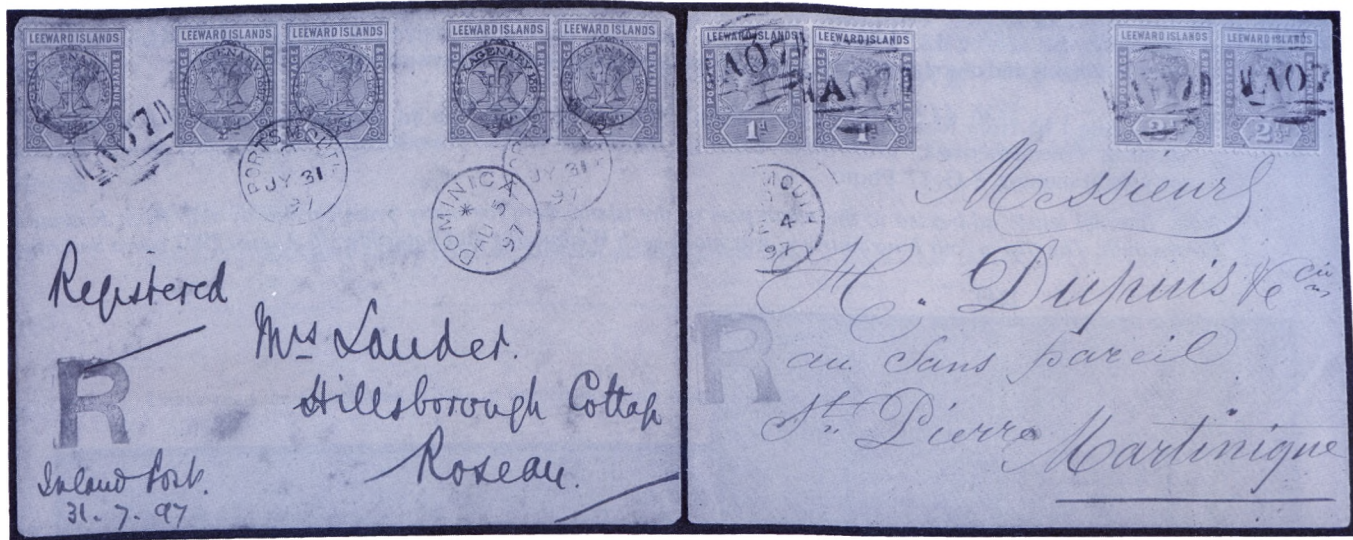 LEEWARD ISLANDS LEEWARD ISLANDS LEEWARD ISLANDS LEEWARD ISLANDS LEEWARD ISLANDS
A07
PORTSMOUTH
JY 31
97
JY 31
97
DOMINICA
*
D AU 5
97
Registered
R
Mrs Lauder.
Hillsborough Cottage
Roseau.
Inland Post.
31-7-97
LEEWARD ISLANDS LEEWARD ISLANDS LEEWARD ISLANDS LEEWARD ISLANDS
POSTAGE
A07 A07 A07 A07
1d 1d 2½d 2½d
MOUTH
4
97
Messieurs
H. Dupuis & Cie
R
au Sans pareil
St. Pierre
Martinique